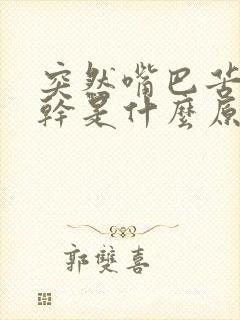 突然嘴巴苦
幹是什麼原
郭雙喜